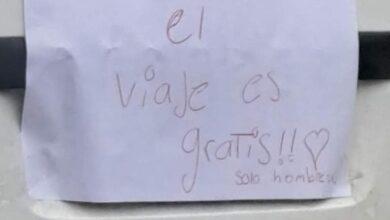 el
viaje es
gratis!!♡
solo hombres